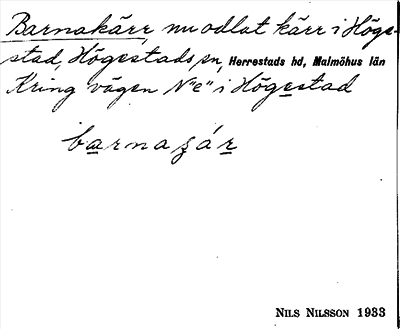 Barnakärr, nu odlat kärr i Höge-
stad, Högestads sn, Herrestads hd, Malmöhus län
Kring vägen N"e" i Högestad
barnaʒár
NILS NILSSON 1933